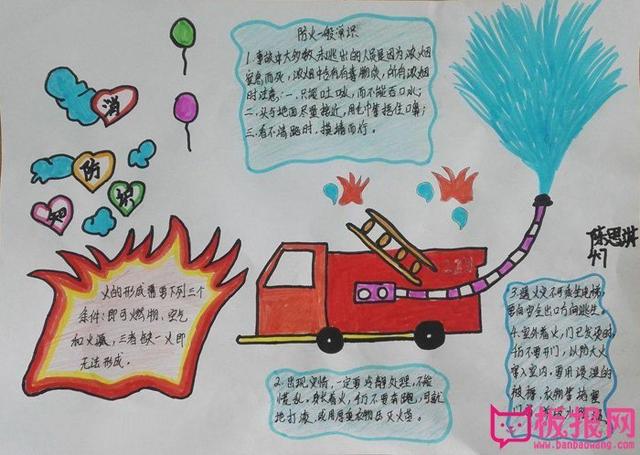 消
防
知
识
防火一般常识
1.事故中大多数未逃出的人员是因为浓烟
窒息而死,浓烟中含有有毒物质,所有浓烟
时注意:一、只能吐吸,而不能吞口水;
二、头与地面尽量接近,用毛巾等捂住口鼻;
三、看不清路时,摸墙而行。
火的形成需要下列三个
条件:即可燃物、空气
和火源,三者缺一火即
无法形成。
2.出现火情,一定要冷静处理,不能
慌乱。身长着火,们不要奔跑,可就
地打滚,或用厚重衣物压灭火苗。
陈思淇
47
3.遇火灾不可乘坐电梯,
要向安全出口方向逃生。
4.室外着火,门已发烫时
不要开门,以防大火
窜入室内,要用浸湿的
被褥、衣物等堵塞
板报网
www.banbaowang.com